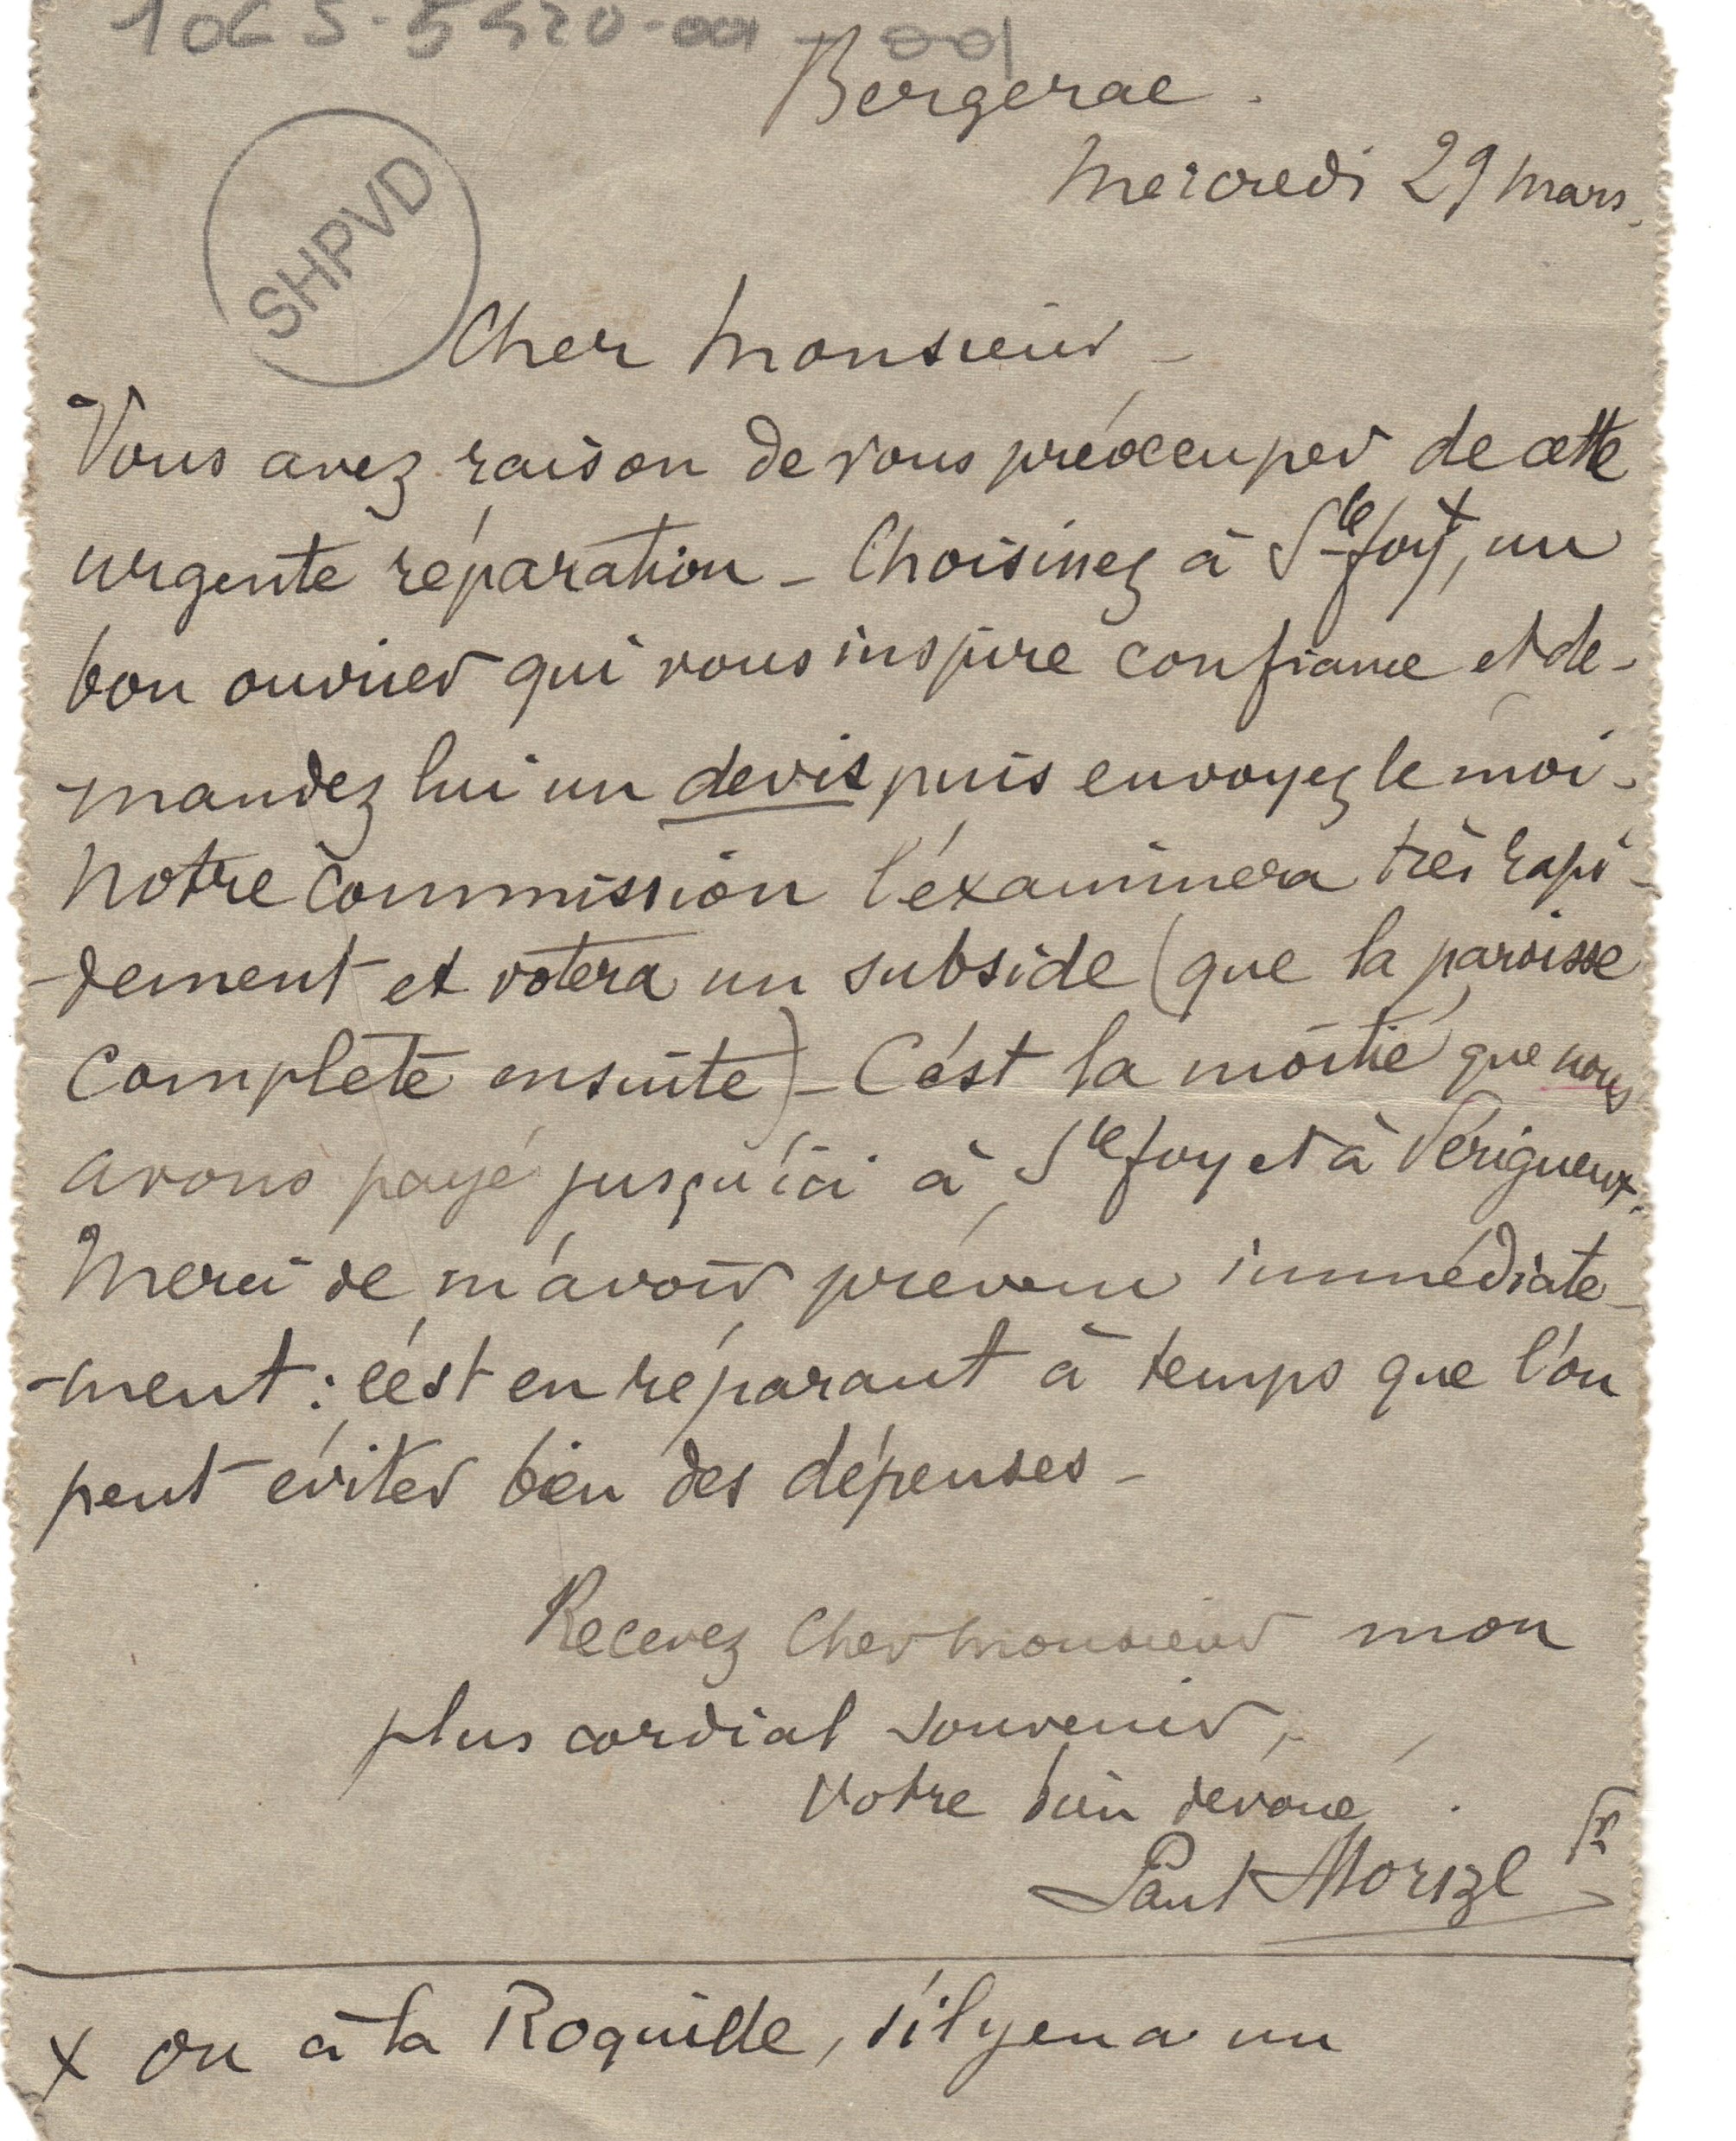 Bergerac.
Mercredi 29 Mars.
SHPVD
Cher Monsieur –
Vous avez raison de vous préoccuper de cette
urgente réparation – Choisissez à Ste foy x, un
bon ouvrier qui vous inspire confiance et de-
-mandez lui un devis puis envoyez le moi –
Notre Commission l'examinera très rapi-
-dement et votera un subside (que la paroisse
complète ensuite) – C'est la moitié que nous
avons payé jusqu'ici à Ste foy et à Périgueux.
Merci de m'avoir prévenu immédiate-
-ment : c'est en réparant à temps que l'on
peut éviter bien des dépenses –
Recevez Cher Monsieur mon
plus cordial souvenir,
Votre bien dévoué.
Paul Morizl
x ou à la Roquille, s'il y en a un